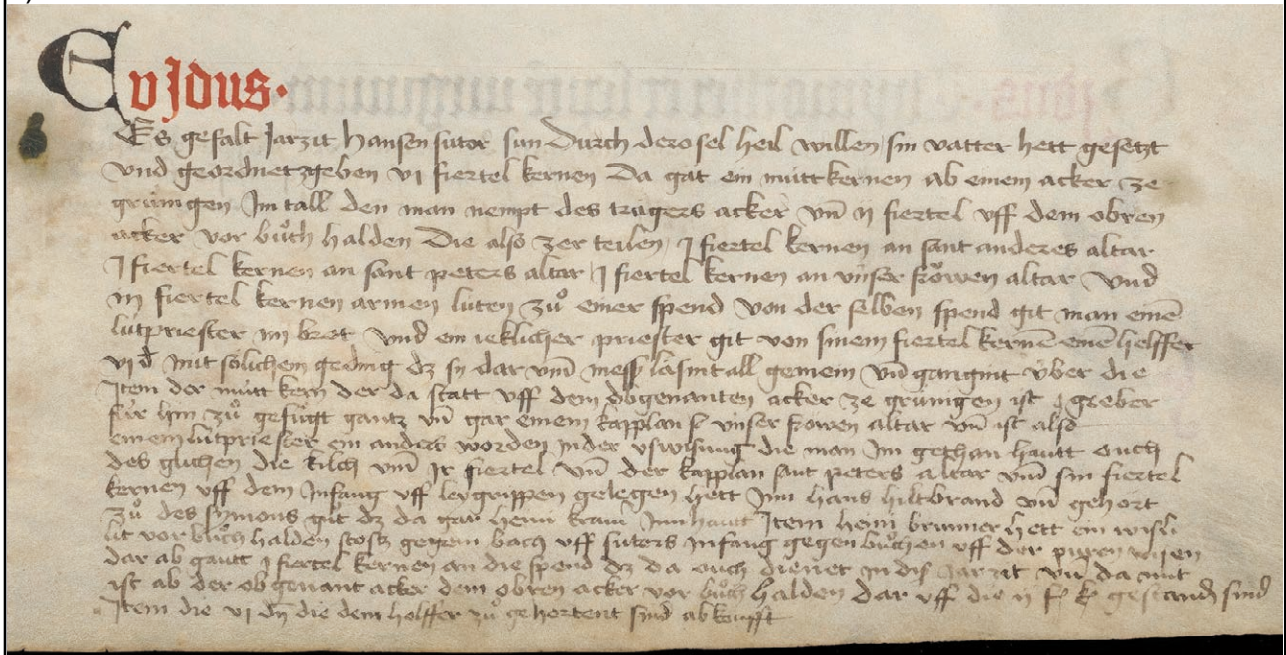 E vJdus.
Es gefalt Jarzit Hansen sutor sun Durch dero sel heil willen sin vatter hett gesetzt
vnd geordnet zgeben vj fiertel kernen Da gat ein mutt kernen ab einem acker ze
grüningen Jm tall den man nempt des tragers acker vn̄ ij fiertel vff dem obren
acker vor buͦch halden Die also zer teilen j fiertel kernen an sant anderes altar
J fiertel kernen an sant peters altar j fiertel kernen an vnser froͧwen altar vnd
iij fiertel kernen armen luten zuͦ einer spend von der selben spend git man einē
lütpriester iiij brot vnd ein ieklicher priester git von sinem fiertel kernē einē helffer
vj d mit soͤlichem geding dz sy dar vm̄ mess laͤsint all gemein vn̄ gangint über die
Jtem der mutt kern der da statt vff dem obgenanten acker ze grüningen ist
für hin zuͦ gefuͤgt gantz vn̄ gar einem kapplan vnser frowen altar vn̄ ist also
einem lütpriester ein anders worden in der vswisung die man im gethan hautt ouch
des glichen die kilch vm̄ jr fiertel vn̄ der kapplan sant peters altar vm̄ sin fiertel
kernen vff dem Jnfang vff gelegen hett Jnn hans hiltbrand vn̄ gehort
zuͦ des symons guͦt dz da gar heini Jnn hautt Jtem heini brunner hett ein wisli
lit vor buͦch halden stosst bach vff suters infang gegen buͦchen vff der wisen
dar ab gautt j fiertel kernen an die spend dz da ouch dienet in dis Jar zit vn̄ da mit
ist ab der ob genant acker dem obren acker vor buͦch halden dar vff die ij f k gestanden sind
Jtem die vj dn̄ die dem helffer zuͦ gehortent sind abkoufft